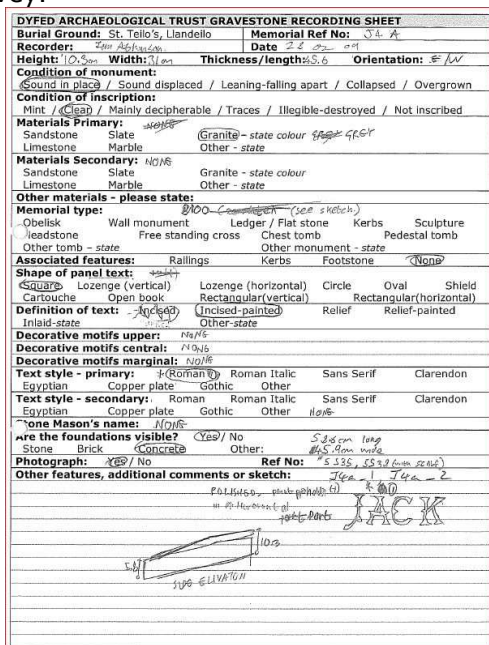 DYFED ARCHAEOLOGICAL TRUST GRAVESTONE RECORDING SHEET
Burial Ground: St. Teilo's, Llandeilo Memorial Ref No: J4 A
Recorder: Date 28 02 09
Height: 10.3cm Width: 31cm Thickness/length: 45.6 Orientation: E/W
Condition of monument:
Sound in place / Sound displaced / Leaning-falling apart / Collapsed / Overgrown
Condition of inscription:
Mint / Clear / Mainly decipherable / Traces / Illegible-destroyed / Not inscribed
Materials Primary: NONE
Sandstone Slate Granite – state colour GREY GREY
Limestone Marble Other - state
Materials Secondary: NONE
Sandstone Slate Granite - state colour
Limestone Marble Other - state
Other materials - please state:
Memorial type: (see sketch)
Obelisk Wall monument Ledger / Flat stone Kerbs Sculpture
Headstone Free standing cross Chest tomb Pedestal tomb
Other tomb – state Other monument - state
Associated features: Railings Kerbs Footstone None
Shape of panel text:
Square Lozenge (vertical) Lozenge (horizontal) Circle Oval Shield
Cartouche Open book Rectangular(vertical) Rectangular(horizontal)
Definition of text: Incised Incised-painted Relief Relief-painted
Inlaid-state Other-state
Decorative motifs upper: NONE
Decorative motifs central: NONE
Decorative motifs marginal: NONE
Text style - primary: Roman Roman Italic Sans Serif Clarendon
Egyptian Copper plate Gothic Other
Text style - secondary: Roman Roman Italic Sans Serif Clarendon
Egyptian Copper plate Gothic Other NONE
Stone Mason's name: NONE
Are the foundations visible? Yes / No 52.6cm long
Stone Brick Concrete Other: 45.9cm wide
Photograph: Yes / No Ref No: 5535, 5538 (with scale)
Other features, additional comments or sketch: J4a_1 J4a_2
POLISHED,
JACK
10.3
5.8
SIDE ELEVATION